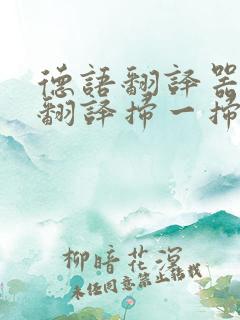 德語翻譯器
翻譯掃一掃
柳暗花溟
未经同意禁止转载